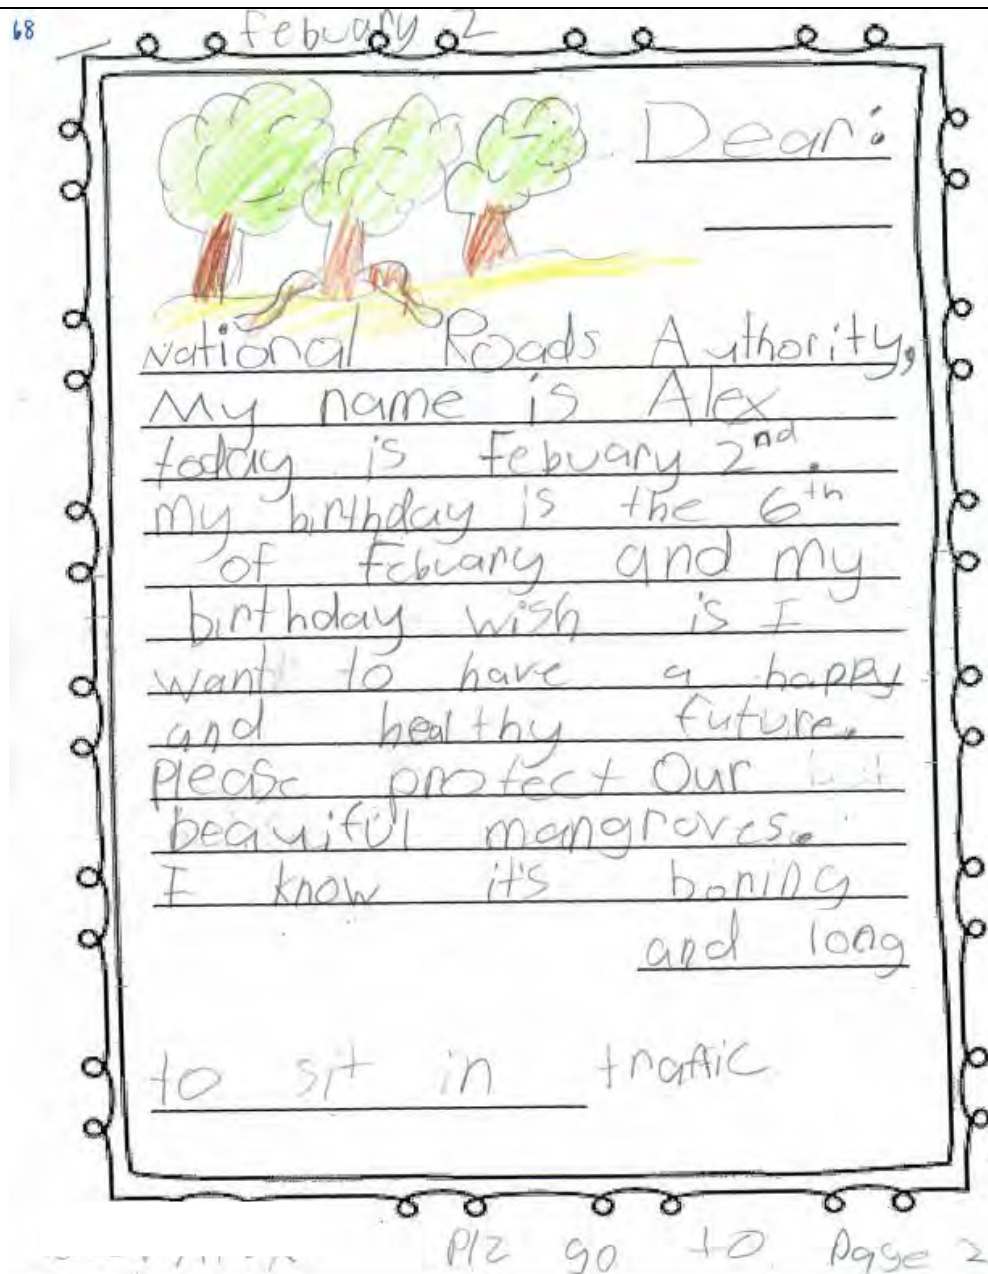 68
febuary 2
Dear:
National Roads Authority,
My name is Alex
today is Febuary 2nd.
My birthday is the 6th
of Febuary and my
birthday wish is I
want to have a happy
and healthy future.
Please protect Our
beauiful mangroves.
I know it's boring
and long
to sit in traffic
Plz go to page 2